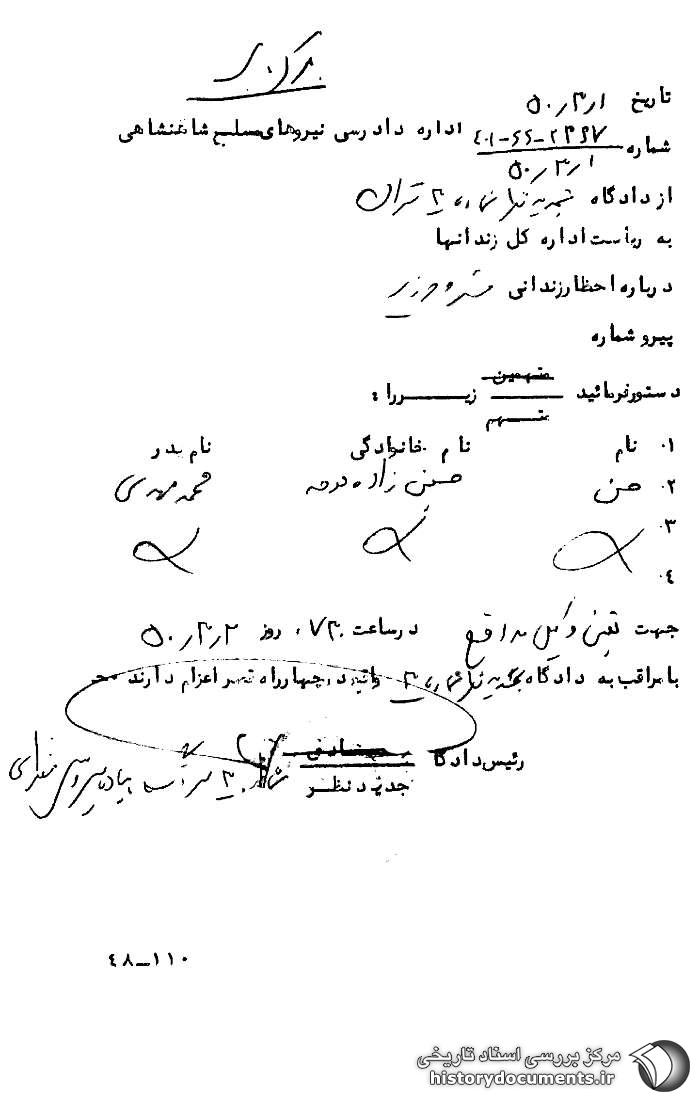 تاریخ ۵۰٫۳٫۱
شماره ۲۴۶۷-۶۶-۴۰۱ اداره دادرسی نیروهای مسلح شاهنشاهی
۵۰٫۳٫۱
از دادگاه تجدید نظر شماره ۲ تهران
به ریاست اداره کل زندانها
درباره احظار زندانی مشروحه زیر
پیرو شماره
دستور فرمائید متهمین متهم زیر را :
۱. نام نام خانوادگی نام پدر
۲. حسن حسینی زاده محمد مهدی
۳.
۴.
جهت تعیین وکیل مدافع در ساعت ۷۳۰ روز ۵۰٫۳٫۲
با مراقب به دادگاه تجدید نظر شماره واقع در چهارراه قصر اعزام دارند
رئیس دادگاه عادی
تجدید نظر
۱۱۰-۴۸
مرکز بررسی اسناد تاریخی
historydocuments.ir